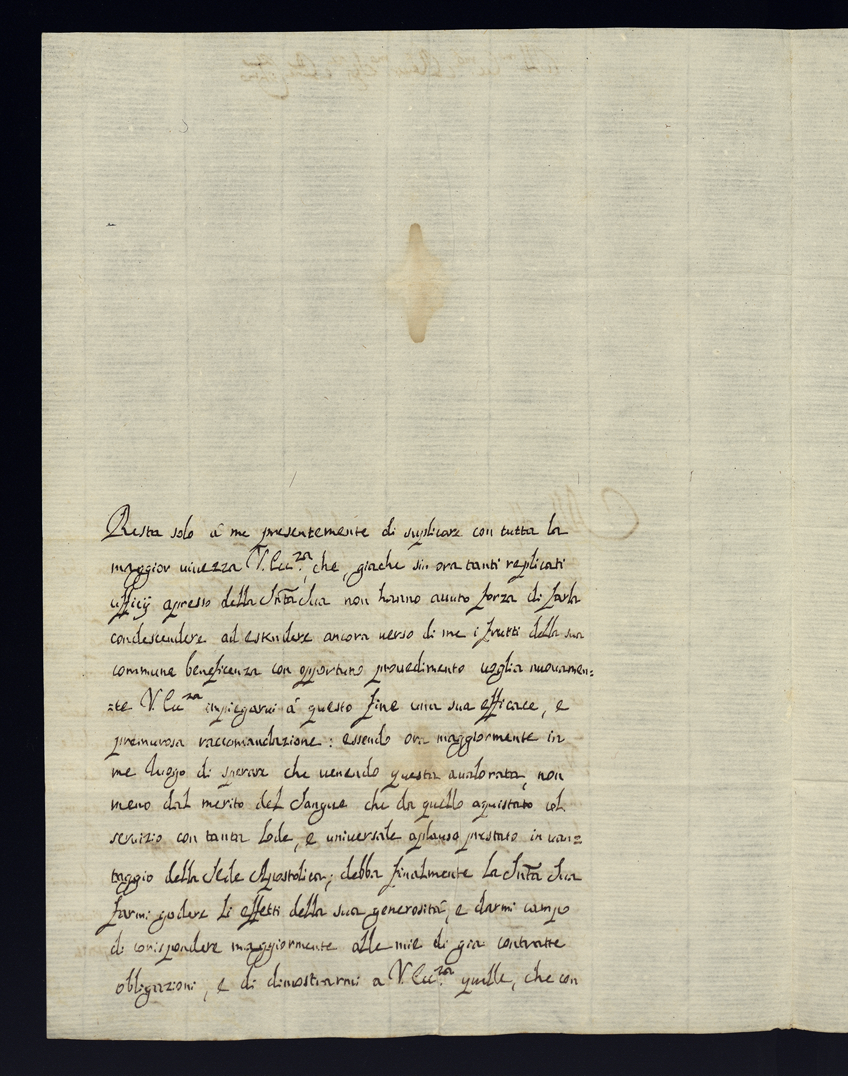 Resta solo à me presentemente di suplicare con tutta la
maggior uiuezza V. Ecc.za, che, giache sin ora tanti replicati
ufficij apresso della Sntà Sua non hanno auuto forza di farla
condescendere ad estendere ancora uerso di me i frutti della sua
commune beneficenza con opportuno prouedimento uoglia nuouamen=
=te V. Ecc.za inpiegarui à questo fine una sua efficace, e
premurosa raccomandazione: essendo ora maggiormente in
me luogo di sperare che uenendo questa aualorata, non
meno dal merito del Sangue che da quello aquistato col
seruizio con tanta lode, e uniuersale aplauso prestato in uan=
taggio della Sede Apostolica; debba finalmente la Sntà Sua
farmi godere li effetti della sua generosità, e darmi campo
di corispondere maggiormente alle mie di gia contratte
obligazioni, e di dimostrarmi a V. Ecc.za quelle, che con